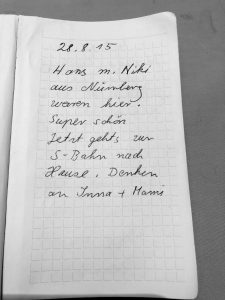 28.8.15
Hans m. Niki
aus Nürnberg
waren hier.
Super schön
Jetzt geht's zur
S-Bahn nach
Hause. Denken
an Inna + Mami